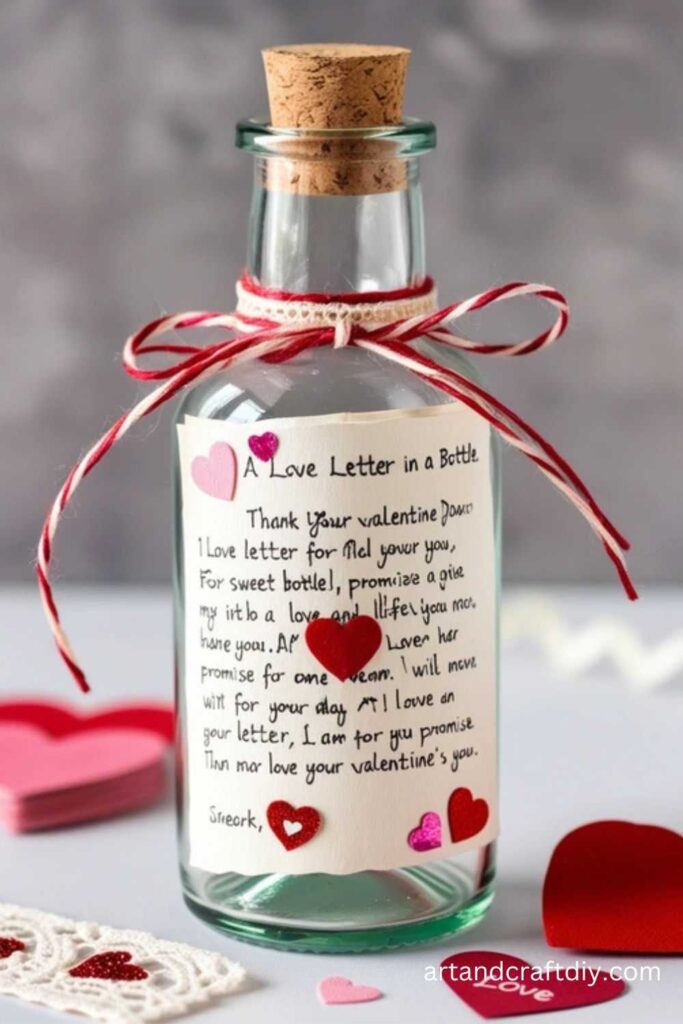 A Love Letter in a Bottle
Thank Your valentine
I Love letter for your you,
For sweet bottle!, promise a give
my a love and you
have you. Lover her
promise for one I will move
for your day I love an
your letter, I am for you promise
love your valentine's you.
Sreork,
Love
artandcraftdiy.com